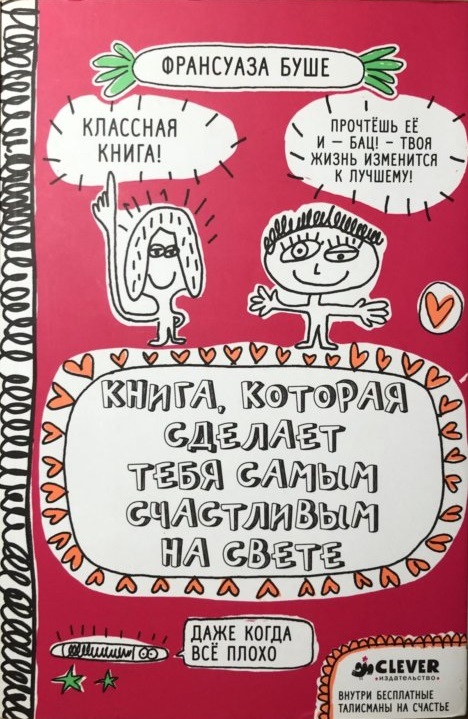 ФРАНСУАЗА БУШЕ
КЛАССНАЯ
КНИГА!
ПРОЧТЁШЬ ЕЁ
И – БАЦ! – ТВОЯ
ЖИЗНЬ ИЗМЕНИТСЯ
К ЛУЧШЕМУ!
КНИГА, КОТОРАЯ
СДЕЛАЕТ
ТЕБЯ САМЫМ
СЧАСТЛИВЫМ
НА СВЕТЕ
ДАЖЕ КОГДА
ВСЁ ПЛОХО
CLEVER
ИЗДАТЕЛЬСТВО
ВНУТРИ БЕСПЛАТНЫЕ
ТАЛИСМАНЫ НА СЧАСТЬЕ